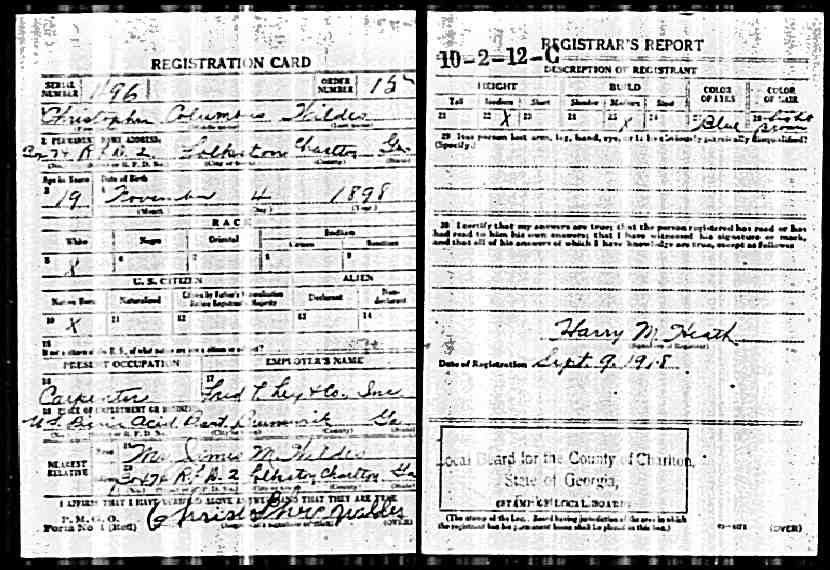 REGISTRATION CARD
SERIAL NUMBER 196
ORDER NUMBER
Christopher Columbus Wildes
2. PERMANENT HOME ADDRESS:
Box 74 R.F.D. 2 Folkston Charlton Ga
Age in Years Date of Birth
3 19 4 November 4 1898
(Month) (Day) (Year)
RACE
White Negro Oriental Indian
Citizen Noncitizen
5 X 6 7 8 9
U. S. CITIZEN ALIEN
Native Born Naturalized Citizen by Father's Naturalization Before Registrant's Majority Declarant Non-declarant
10 X 11 12 13 14
15
If not a citizen of the U. S., of what nation are you a citizen or subject?
PRESENT OCCUPATION EMPLOYER'S NAME
16 17
Carpenter Fred T. Ley & Co. Inc
18 PLACE OF EMPLOYMENT OR BUSINESS:
U.S. Picric Acid Plant Brunswick Ga
NEAREST RELATIVE
Name 19 Mrs James M. Wildes
20 Box 74 R.F.D. 2 Folkston Charlton Ga
I AFFIRM THAT I HAVE VERIFIED ABOVE ANSWERS AND THAT THEY ARE TRUE
P. M. G. O.
Form No. 1 (Red)
Christopher C Wildes
(OVER)
REGISTRAR'S REPORT
10-2-12-C
DESCRIPTION OF REGISTRANT
HEIGHT BUILD COLOR OF EYES COLOR OF HAIR
Tall Medium Short Slender Medium Stout
21 22 X 23 24 25 X 26 27 Blue 28 Light Brown
29 Has person lost arm, leg, hand, eye, or is he obviously physically disqualified?
(Specify.)
30 I certify that my answers are true; that the person registered has read or has
had read to him his own answers; that I have witnessed his signature or mark,
and that all of his answers of which I have knowledge are true, except as follows:
Harry M. Heath
(Signature of Registrar)
Date of Registration Sept. 9, 1918
Local Board for the County of Charlton,
State of Georgia,
(STAMP OF LOCAL BOARD)
(The stamp of the Local Board having jurisdiction of the area in which
the registrant has his permanent home shall be placed in this box.)
(OVER)